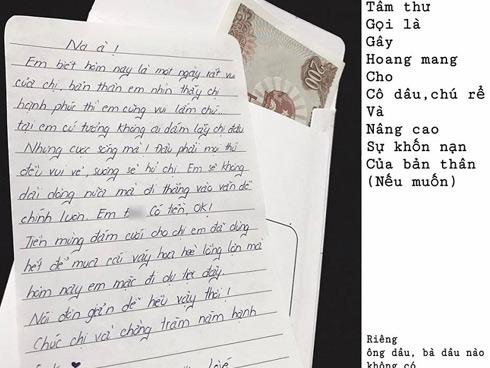 Na à!
Em biết hôm nay là một ngày rất vui
của chị, bản thân em nhìn thấy chị
hạnh phúc thì em cũng vui lắm chứ..
tại em cứ tưởng không ai dám lấy chị đâu
Nhưng cuộc sống mà! Đâu phải mọi thứ
đều vui vẻ, sướng sẽ hở chị. Em sẽ không
dài dòng nữa mà đi thẳng vào vấn đề
chính luôn. Em Có tiền, OK!
Tiền mừng đám cưới cho chị em đã dùng
hết để mua cái váy hoa hoè lồng lộn mà
hôm nay em mặc đi dự tiệc đấy..
Nói đơn giản dễ hiểu vậy thôi!
Chúc chị và chồng trăm năm hạnh
200
Tâm thư
Gọi là
Gây
Hoang mang
Cho
Cô dâu,chú rể
Và
Nâng cao
Sự khốn nạn
Của bản thân
(Nếu muốn)
Riêng
ông dâu, bà dâu nào
không có